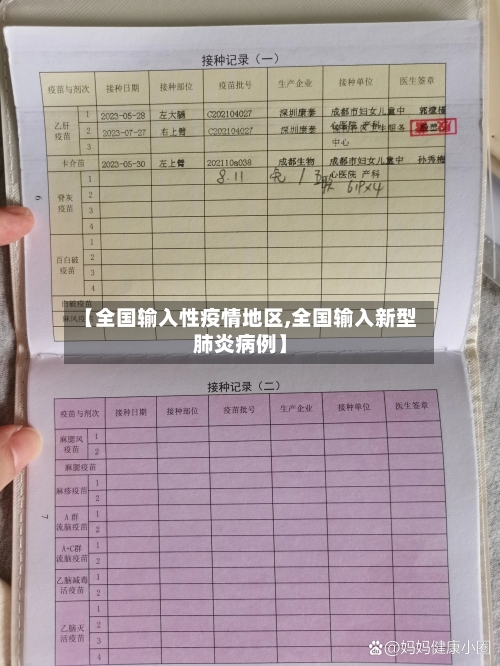 接种记录（一）
疫苗与剂次 接种日期 接种部位 疫苗批号 生产企业 接种单位 医生签章
乙肝疫苗 1 2023-05-28 左大腿 C202104027 深圳康泰 成都市妇女儿童中心医院 产科
2 2023-07-27 右上臂 C202104027 深圳康泰 中心
3
卡介苗 2023-05-30 左上臂 202110a038 成都生物 成都市妇女儿童中心医院 产科 孙秀梅
脊灰疫苗 1 8.11
2
3
4
百白破疫苗 1
2
3
4
白破疫苗
麻风疫苗
6
【全国输入性疫情地区,全国输入新型
肺炎病例】
接种记录（二）
疫苗与剂次 接种日期 接种部位 疫苗批号 生产企业 接种单位 医生签章
麻腮风疫苗 1
2
麻腮疫苗
麻疹疫苗 1
2
A 群流脑疫苗 1
2
A+C群流脑疫苗 1
2
乙脑减毒活疫苗 1
2
乙脑灭活疫苗 1
2
3
4
7
@妈妈健康小圈